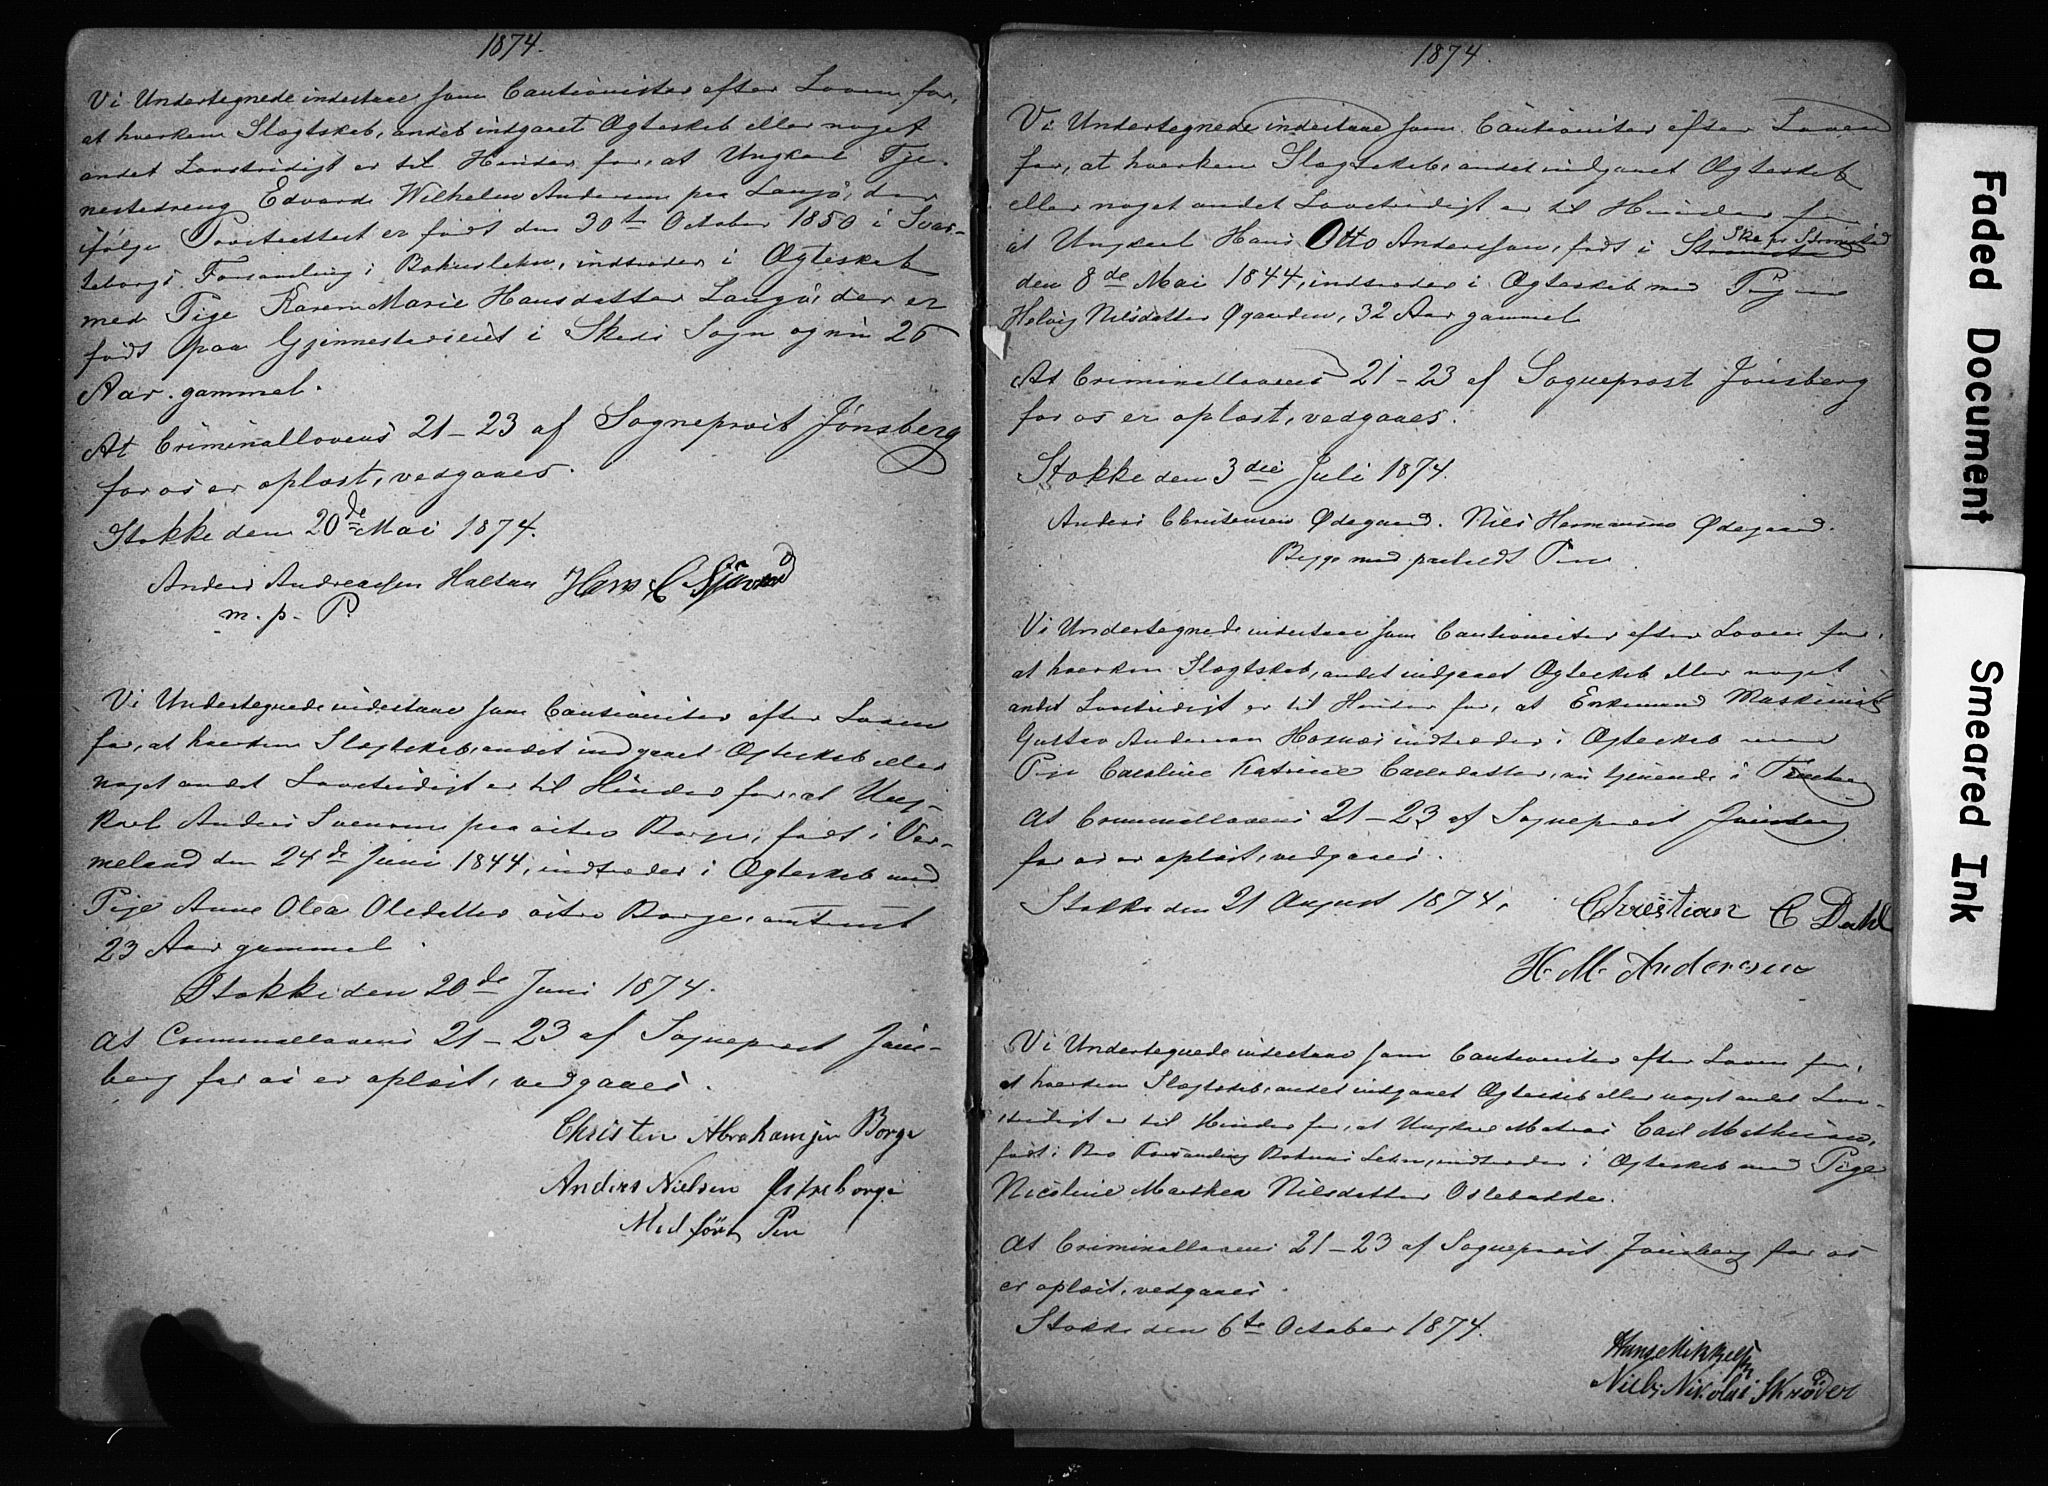 1874.
Vi Undertegnede indestaae som Cautionister efter Loven for,
at hverken Slægtskab, andet indgaaet Ægteskab eller noget
andet Lovstridigt er til Hinder for, at Ungkarl Tje-
nestedreng Edvard Wilhelm Andersen paa Langø, der
ifølge Præsteattest er født den 30te October 1850 i Svar-
teborgs Forsamling i Bohuslehn, indtræder i Ægteskab
med Pige Karen Marie Hansdatter Langø, der er
født paa Gjennestad i Skeds Sogn og nu 26
Aar gammel.
At Criminallovens 21-23 af Sogneprest Jønsberg
for os er oplæst, vedgaaes.
Stokke den 20de Mai 1874.
Anders Andreassen Haltan Hans C
m. p. P.
Vi Undertegnede indestaae som Cautionister efter Loven
for, at hverken Slægtskab, andet indgaaet Ægteskab eller
noget andet Lovstridigt er til Hinder for, at Ung-
karl Anders Svensen paa østre Borge, født i Ver-
meland den 24de Juni 1844, indtræder i Ægteskab med
Pige Anne Olea Olsdatter østre Borge, omtrent
23 Aar gammel.
Stokke den 20de Juni 1874.
At Criminallovens 21-23 af Sogneprest Jøns-
berg for os er oplæst, vedgaaes.
Christen Abrahamsen Borge
Anders Nielsen Østreborge
Med ført Pen
1874.
Vi Undertegnede indestaae som Cautionister efter Loven
for, at hverken Slægtskab, andet indgaaet Ægteskab
eller noget andet Lovstridigt er til Hinder for
at Ungkarl Hans Otto Andersson, født i Skee pr Strømstad
den 8de Mai 1844, indtræder i Ægteskab med Pigen
Helvig Nilsdatter Øgaarden, 32 Aar gammel
At Criminallovens 21-23 af Sogneprest Jønsberg
for os er oplæst, vedgaaes.
Stokke den 3die Juli 1874.
Anders Christensen Ødegaard. Nils Hermansen Ødegaard.
Begge med paaholdt Pen
Vi Undertegnede indestaae som Cautionister efter Loven for,
at hverken Slægtskab, andet indgaaet Ægteskab eller noget
andet Lovstridigt er til Hinder for, at Enkemand Maskinist
Gustav Andersen Hasnæs indtræder i Ægteskab med
Pige Caroline Katrine Carlsdatter, nu tjenende i Tønsberg
At Criminallovens 21-23 af Sogneprest Jønsberg
for os er oplæst, vedgaaes.
Stokke den 21 August 1874.
Christian C Dahl
H. M. Andersen
Vi Undertegnede indestaae som Cautionister efter Loven for,
at hverken Slægtskab, andet indgaaet Ægteskab eller noget andet Lov-
stridigt er til Hinder for, at Ungkarl Matros Carl Mathisen,
født i Bro Forsamling Bohus Lehn, indtræder i Ægteskab med Pige
Nicoline Marthea Nilsdatter Oslebakke.
At Criminallovens 21-23 af Sogneprest Jønsberg for os
er oplæst, vedgaaes.
Stokke den 6te October 1874.
Hans Mikkelsen
Niels Nikolai Skrøder
Faded Document
Smeared Ink